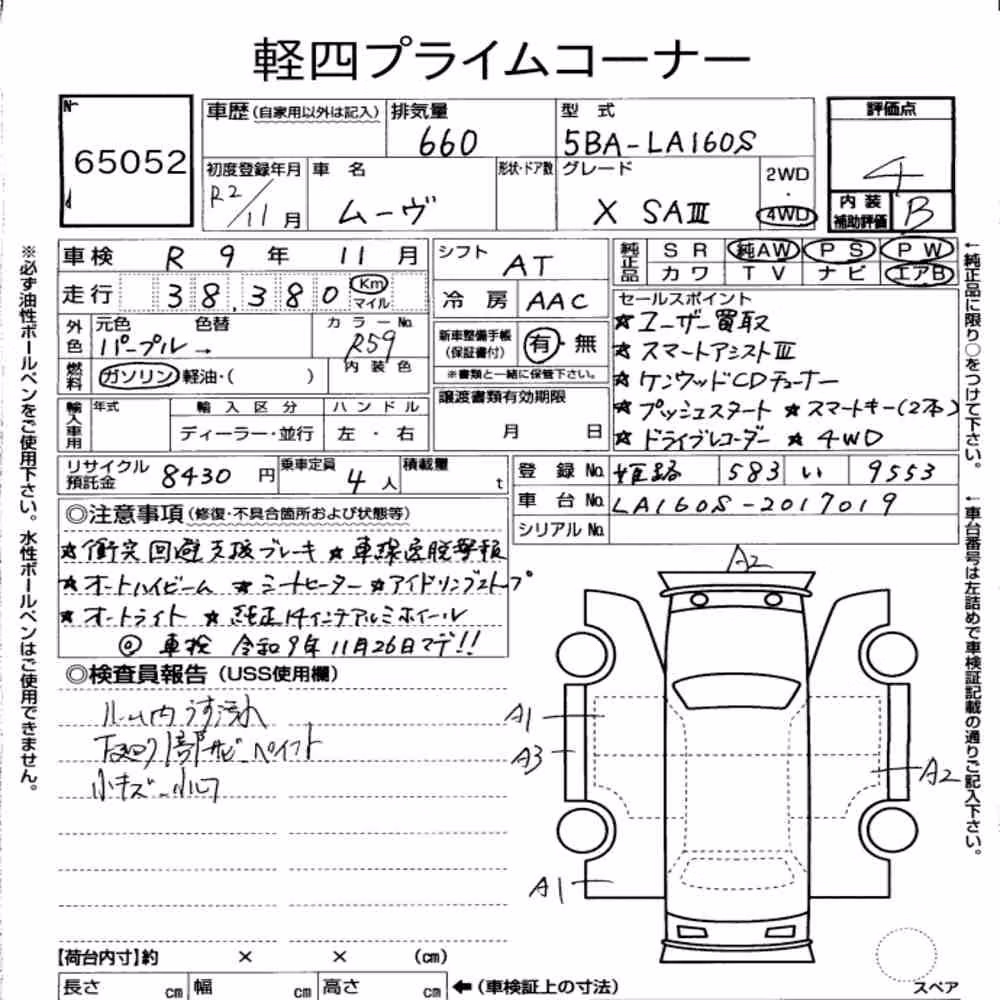 軽四プライムコーナー
№
65052
車歴(自家用以外は記入)
排気量
660
型 式
5BA-LA160S
評価点
4
初度登録年月
R2/11月
車 名
ムーヴ
形状・ドア数
グレード
X SAⅢ
2WD
・
4WD
内 装
補助評価
B
車検 R 9 年 11 月
シフト
AT
純正品
SR 純AW PS PW
カワ TV ナビ エアB
走行 38,380 Km
マイル
冷 房 AAC
外色
元色 色替
パープル →
カラーNo.
R59
新車整備手帳
(保証書付)
有・無
※書類と一緒に保管下さい。
燃料
ガソリン・軽油・( )
内 装 色
セールスポイント
☆ユーザー買取
☆スマートアシストⅢ
☆ケンウッドCDチューナー
☆プッシュスタート ☆スマートキー(2本)
☆ドライブレコーダー ☆4WD
輸入車用
年式
輸 入 区 分
ハ ン ド ル
ディーラー・並行
左 ・ 右
譲渡書類有効期限
月 日
リサイクル
預託金
8430 円
乗車定員
4 人
積載量
t
登 録 No. 姫路 583 い 9553
車 台 No. LA160S-2017019
シリアル No.
◎注意事項(修復・不具合箇所および状態等)
☆衝突回避支援ブレーキ ☆車線逸脱警報
☆オートハイビーム ☆シートヒーター ☆アイドリングストープ
☆オートライト ☆純正14インチアルミホイール
◎車検 令和9年11月26日マデ!!
◎検査員報告(USS使用欄)
ルーム内うす汚れ
下廻り1部サビ・ペイント
小キズ・小凹
A2
A1
A3
A2
A1
【荷台内寸】約 × × (cm)
長さ cm 幅 cm 高さ cm ←(車検証上の寸法)
スペア
※必ず油性ボールペンをご使用下さい。水性ボールペンはご使用できません。
←純正品に限り○をつけて下さい。
↑車台番号は左詰めで車検証記載の通りご記入下さい。